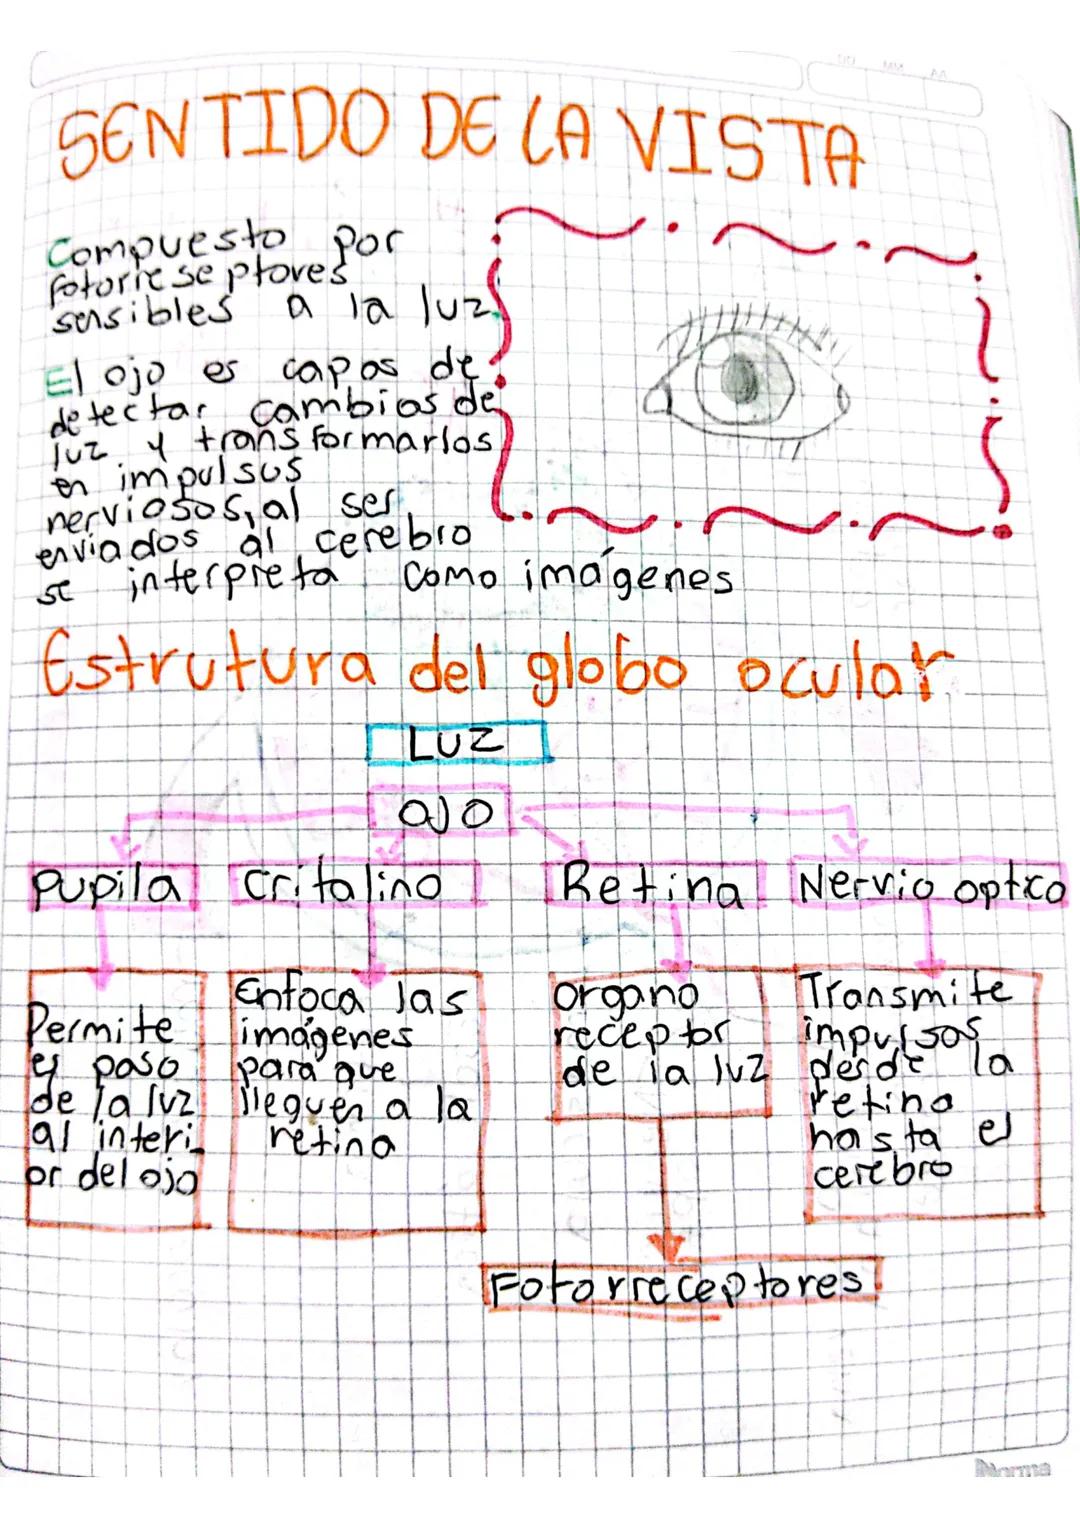 SENTIDO DE LA VISTA
Compuesto por
fotorreseptores
sensibles a la luz
El ojo es capas de
detectar cambios de
luz y transformarlos
en impulsos
nerviosos, al ser
enviados al cerebro
se interpreta como imágenes
Estrutura del globo ocular
LUZ
OJO
Pupila
Critalino
Retina
Nervio optico
Permite
el paso
de la luz
al interi_
or del ojo
Enfoca las
imágenes
para que
lleguen a la
retina
organo
receptor
de la luz
Transmite
impulsos
desde la
retina
hasta el
cerebro
Fotorreceptores
Norma